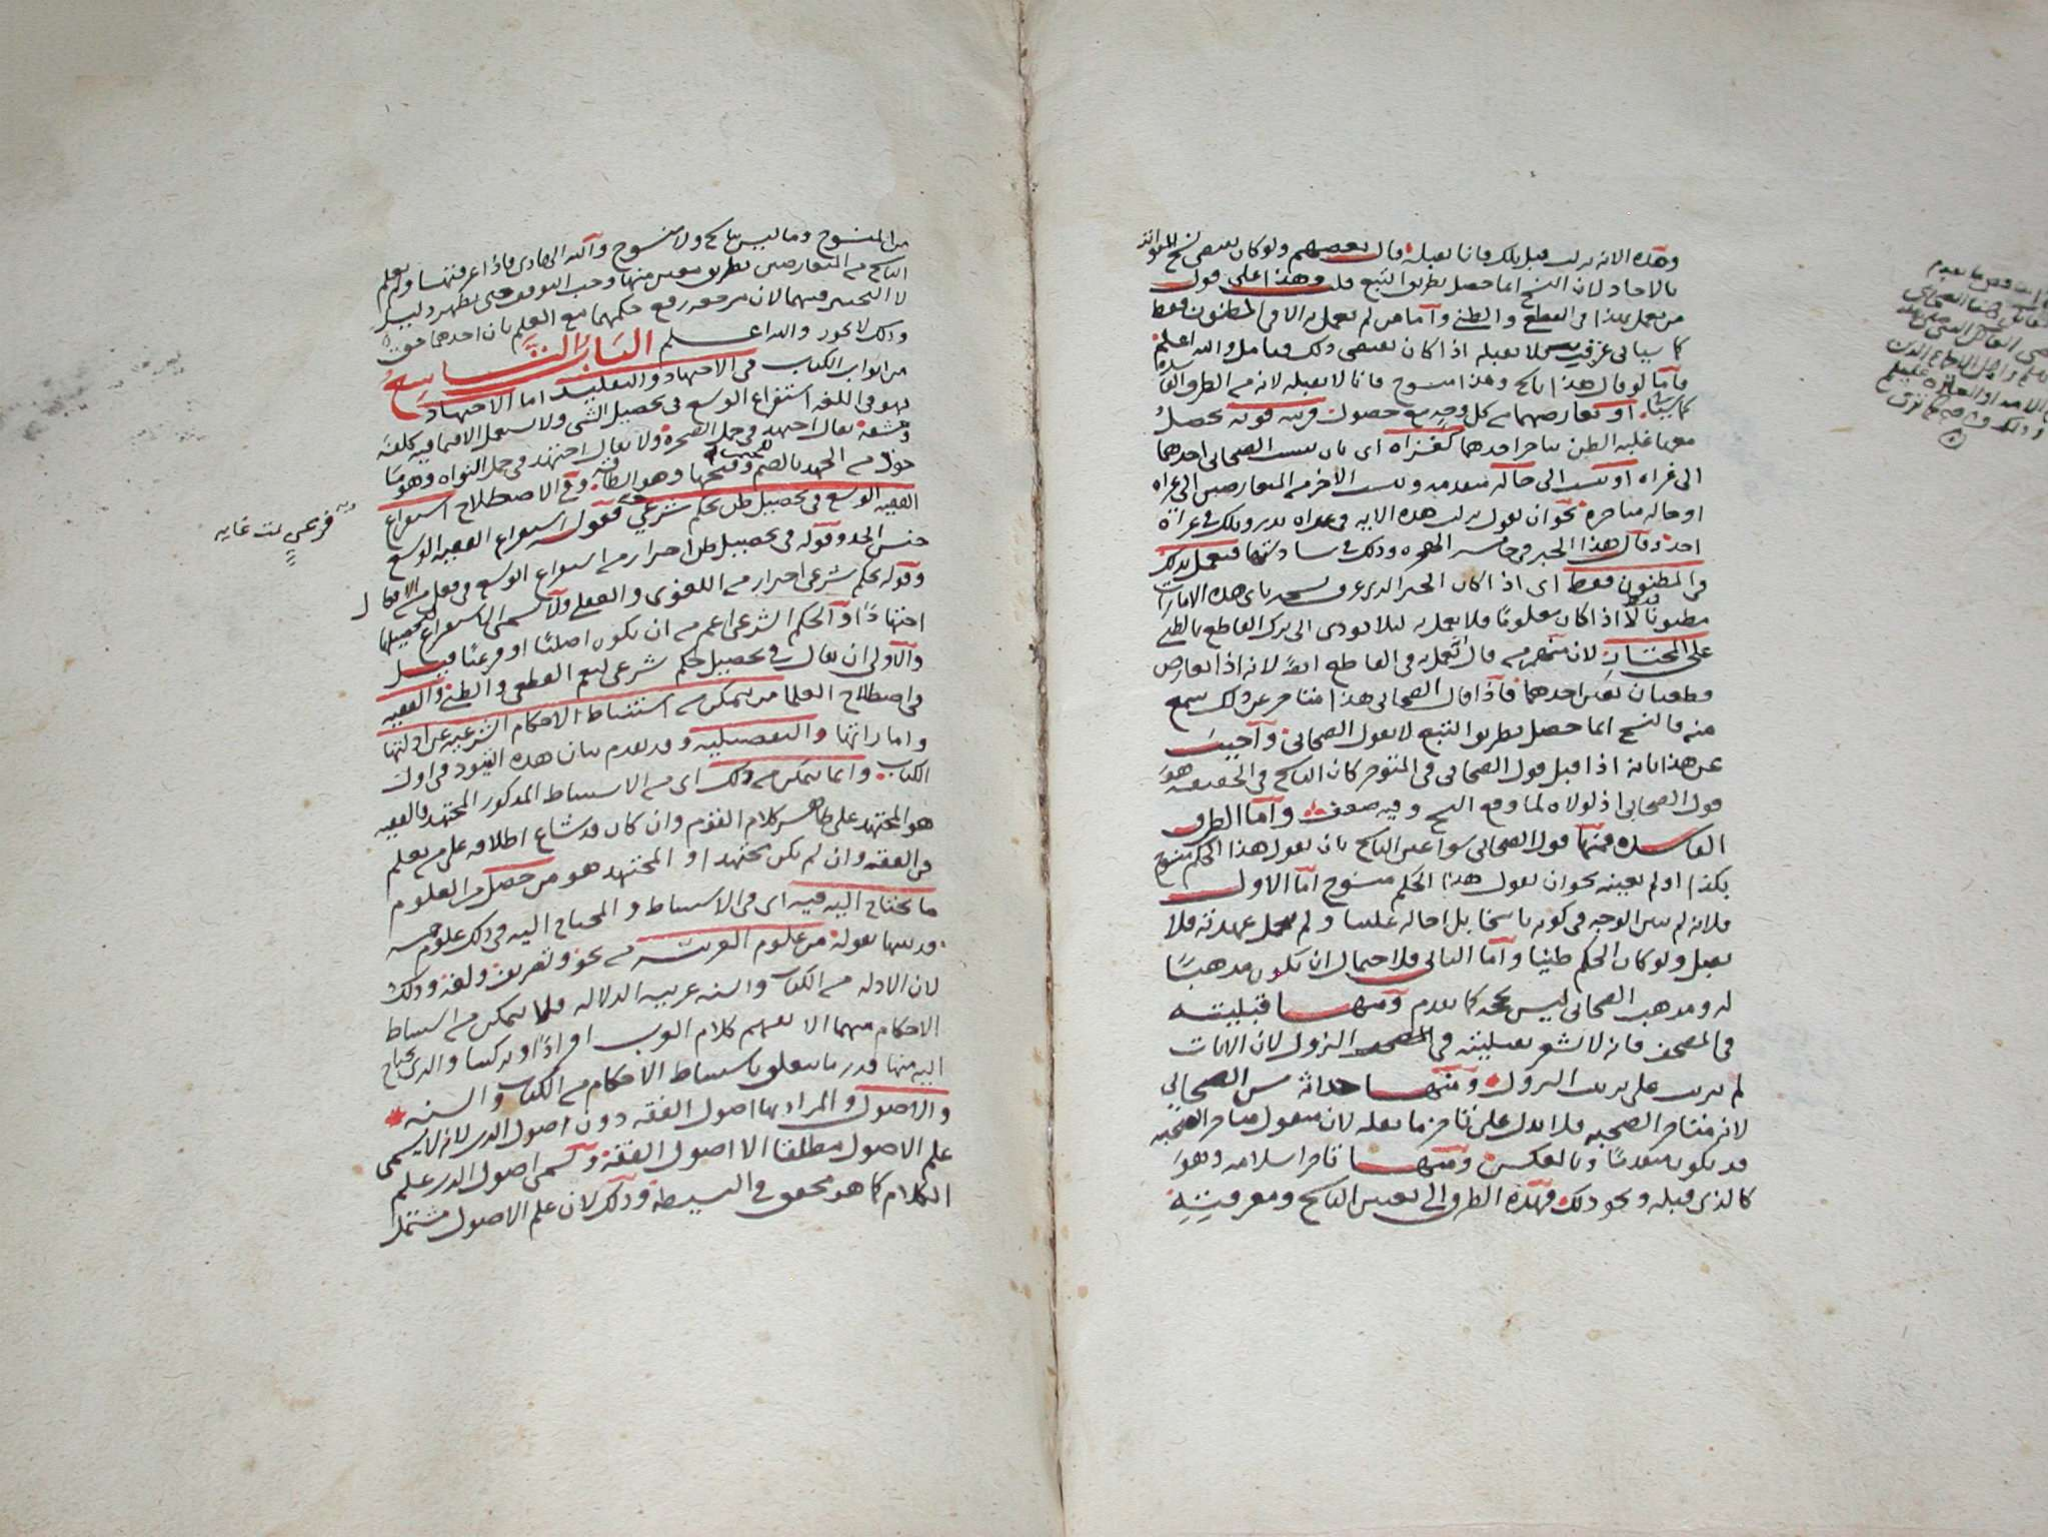 وهذه الاية نزلت قبل تلك فانا نقبله قال بعضهم ولو كان يقتضي نسخ المتواتر
بالاحاد لان النسخ انما حصل بطريق التبع قلت وهذا على قول
من يعمل بهذا في القطعي والظني وأما من لم يعمل به الا في المظنون فقط
كما سياتي عن قريب فلا نقبله اذا كان يقتضي ذلك فتامل والله اعلم
فأما لو قال هذا ناسخ وهذا منسوخ فانا لا نقبله لانه من الطرق الفاسدة
كما سياتي او تعارضهما من كل وجه مع حصول قرينه قويه يحصل
معها غلبة الظن بتاخر احدهما كغزاه اي بان ينسب الصحابي احدهما
الى غزاه او نسب الى حالة متقدمه ونسب الاخر من المتعارضين الى غزاه
او حاله متاخره نحو ان يقول نزلت هذه الايه في غزاه بدر وتلك في غزاة
احد وقال هذا الخبر في خامس الهجره وذلك في سادستها فيعمل بذلك
في المظنون فقط اي اذا كان الخبر الذي عرف نسخه باي هذه الامارات
مظنونا فقط لا اذا كان معلوما فلا يعمل به لئلا يودي الى ترك القاطع بالظني
على المختار لان منهم من قال نعمل به في القاطع ايضا لانه اذا تعارض
قطعيان تعين احدهما فاذا قال الصحابي هذا متاخر عن ذلك سمع
منه فالنسخ انما حصل بطريق التبع لا بقول الصحابي وأجيب
عن هذا بانه اذا قبل قول الصحابي في المتوخر كان الناسخ في الحقيقه هو
قول الصحابي اذ لولاه لما وقع النسخ وفيه ضعف وأما الطرق
الفاسده فمنها قول الصحابي سوا عين الناسخ بان يقول هذا الحكم منسوخ
بكذا او لم يعينه نحو ان يقول هذا الحكم منسوخ أما الاول
فلانه لم يبين الوجه في كونه ناسخا بل احاله علينا ولم يحمل عهدته فلا
يقبل ولو كان الحكم ظنيا وأما الثاني فلاحتمال ان يكون مذهبا
له ومذهب الصحابي ليس بحجه كما تقدم ومنها قبليته
في المصحف فانه لا تشعر بقبليته في النزول لان الايات
لم ترتب على ترتيب النزول ومنها حداثة سن الصحابي
لانه متاخر الصحبه فلا يدل على تاخر ما نقله لان منقول متاخر الصحبه
قد يكون متقدما وبالعكس ومنها تاخر اسلامه وهو
كالذي قبله ونحو ذلك فهذه الطرق الى تعيين الناسخ ومعرفته
من المنسوخ وما ليس بناسخ ولا منسوخ والله الهادي فاذا عرفتها ولم يعلم
الناسخ من المتعارضين بطريق معين منها وجب التوقف حتى يظهر دليل
لا التخيير فيهما لان مرجعه رفع حكمهما مع العلم بان احدهما حق
وذلك لا يجوز والله اعلم الباب التاسع
من ابواب الكتاب في الاجتهاد والتقليد اما الاجتهاد
فهو في اللغه استفراغ الوسع في تحصيل الشي ولا يستعمل الا فيما فيه كلفة
ومشقه يقال اجتهد في حمل الصخره ولا يقال اجتهد في حمل النواه وهو ما
خوذ من الجهد بالضم وفتحها وهو الطاقه وفي الاصطلاح استفراغ
الفقيه الوسع في تحصيل ظن بحكم شرعي فقوله استفراغ الفقيه الوسع
جنس الحد وقوله في تحصيل ظن احترار من استفراغ الوسع في فعل من الافعال
وقوله بحكم شرعي احترار من اللغوي والعقلي ولا يسمى الاستفراغ لتحصيلها
اجتهادا والحكم الشرعي اعم من ان يكون اصليا او فرعيا قيل
والأولى ان يقال في تحصيل حكم شرعي ليعم القطعي والظني والفقيه
في اصطلاح العلما من يتمكن من استنباط الاحكام الشرعيه عن ادلتها
واماراتها والتفصيليه وقد تقدم بيان هذه القيود في اول
الكتاب وانما يتمكن من ذلك اي من الاستنباط المذكور المجتهد فالفقيه
هو المجتهد على ظاهر كلام القوم وان كان قد شاع اطلاقه على من يعلم
فن الفقه وان لم يكن مجتهدا و المجتهد هو من حصل من العلوم
ما يحتاج اليه فيه اي في الاستنباط و المحتاج اليه في ذلك علوم خمسه
قد بينها بقوله من علوم العربية من نحو وتصريف ولغه وذلك
لان الادله من الكتاب والسنه عربيه الدلاله فلا يتمكن من استنباط
الاحكام منهما الا بفهم كلام العرب افرادا وتركيبا والذي يحتاج
اليه منها قدر ما يتعلق باستنباط الاحكام من الكتاب والسنه
والاصول والمراد بها اصول الفقه دون اصول الدين لانه لا يسمى
علم الاصول مطلقا الا اصول الفقه وتسمى اصول الدين علم
الكلام كما هو محقق في البسيطه وذلك لان علم الاصول مشتمل
فرعي تمت غايه